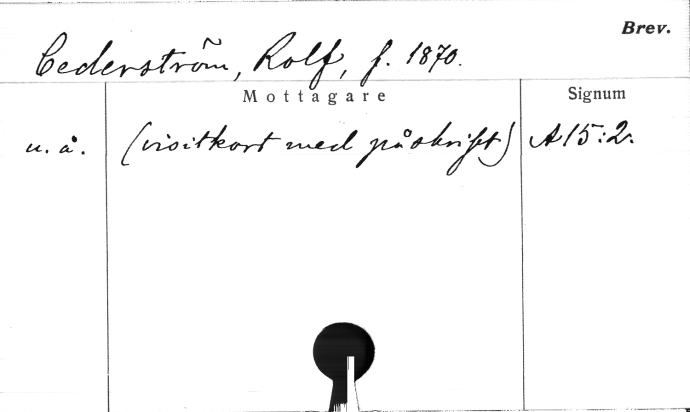 Brev.
Cederström, Rolf, f. 1870.
Mottagare
Signum
u. å. (visitkort med påskrift) A15:2.